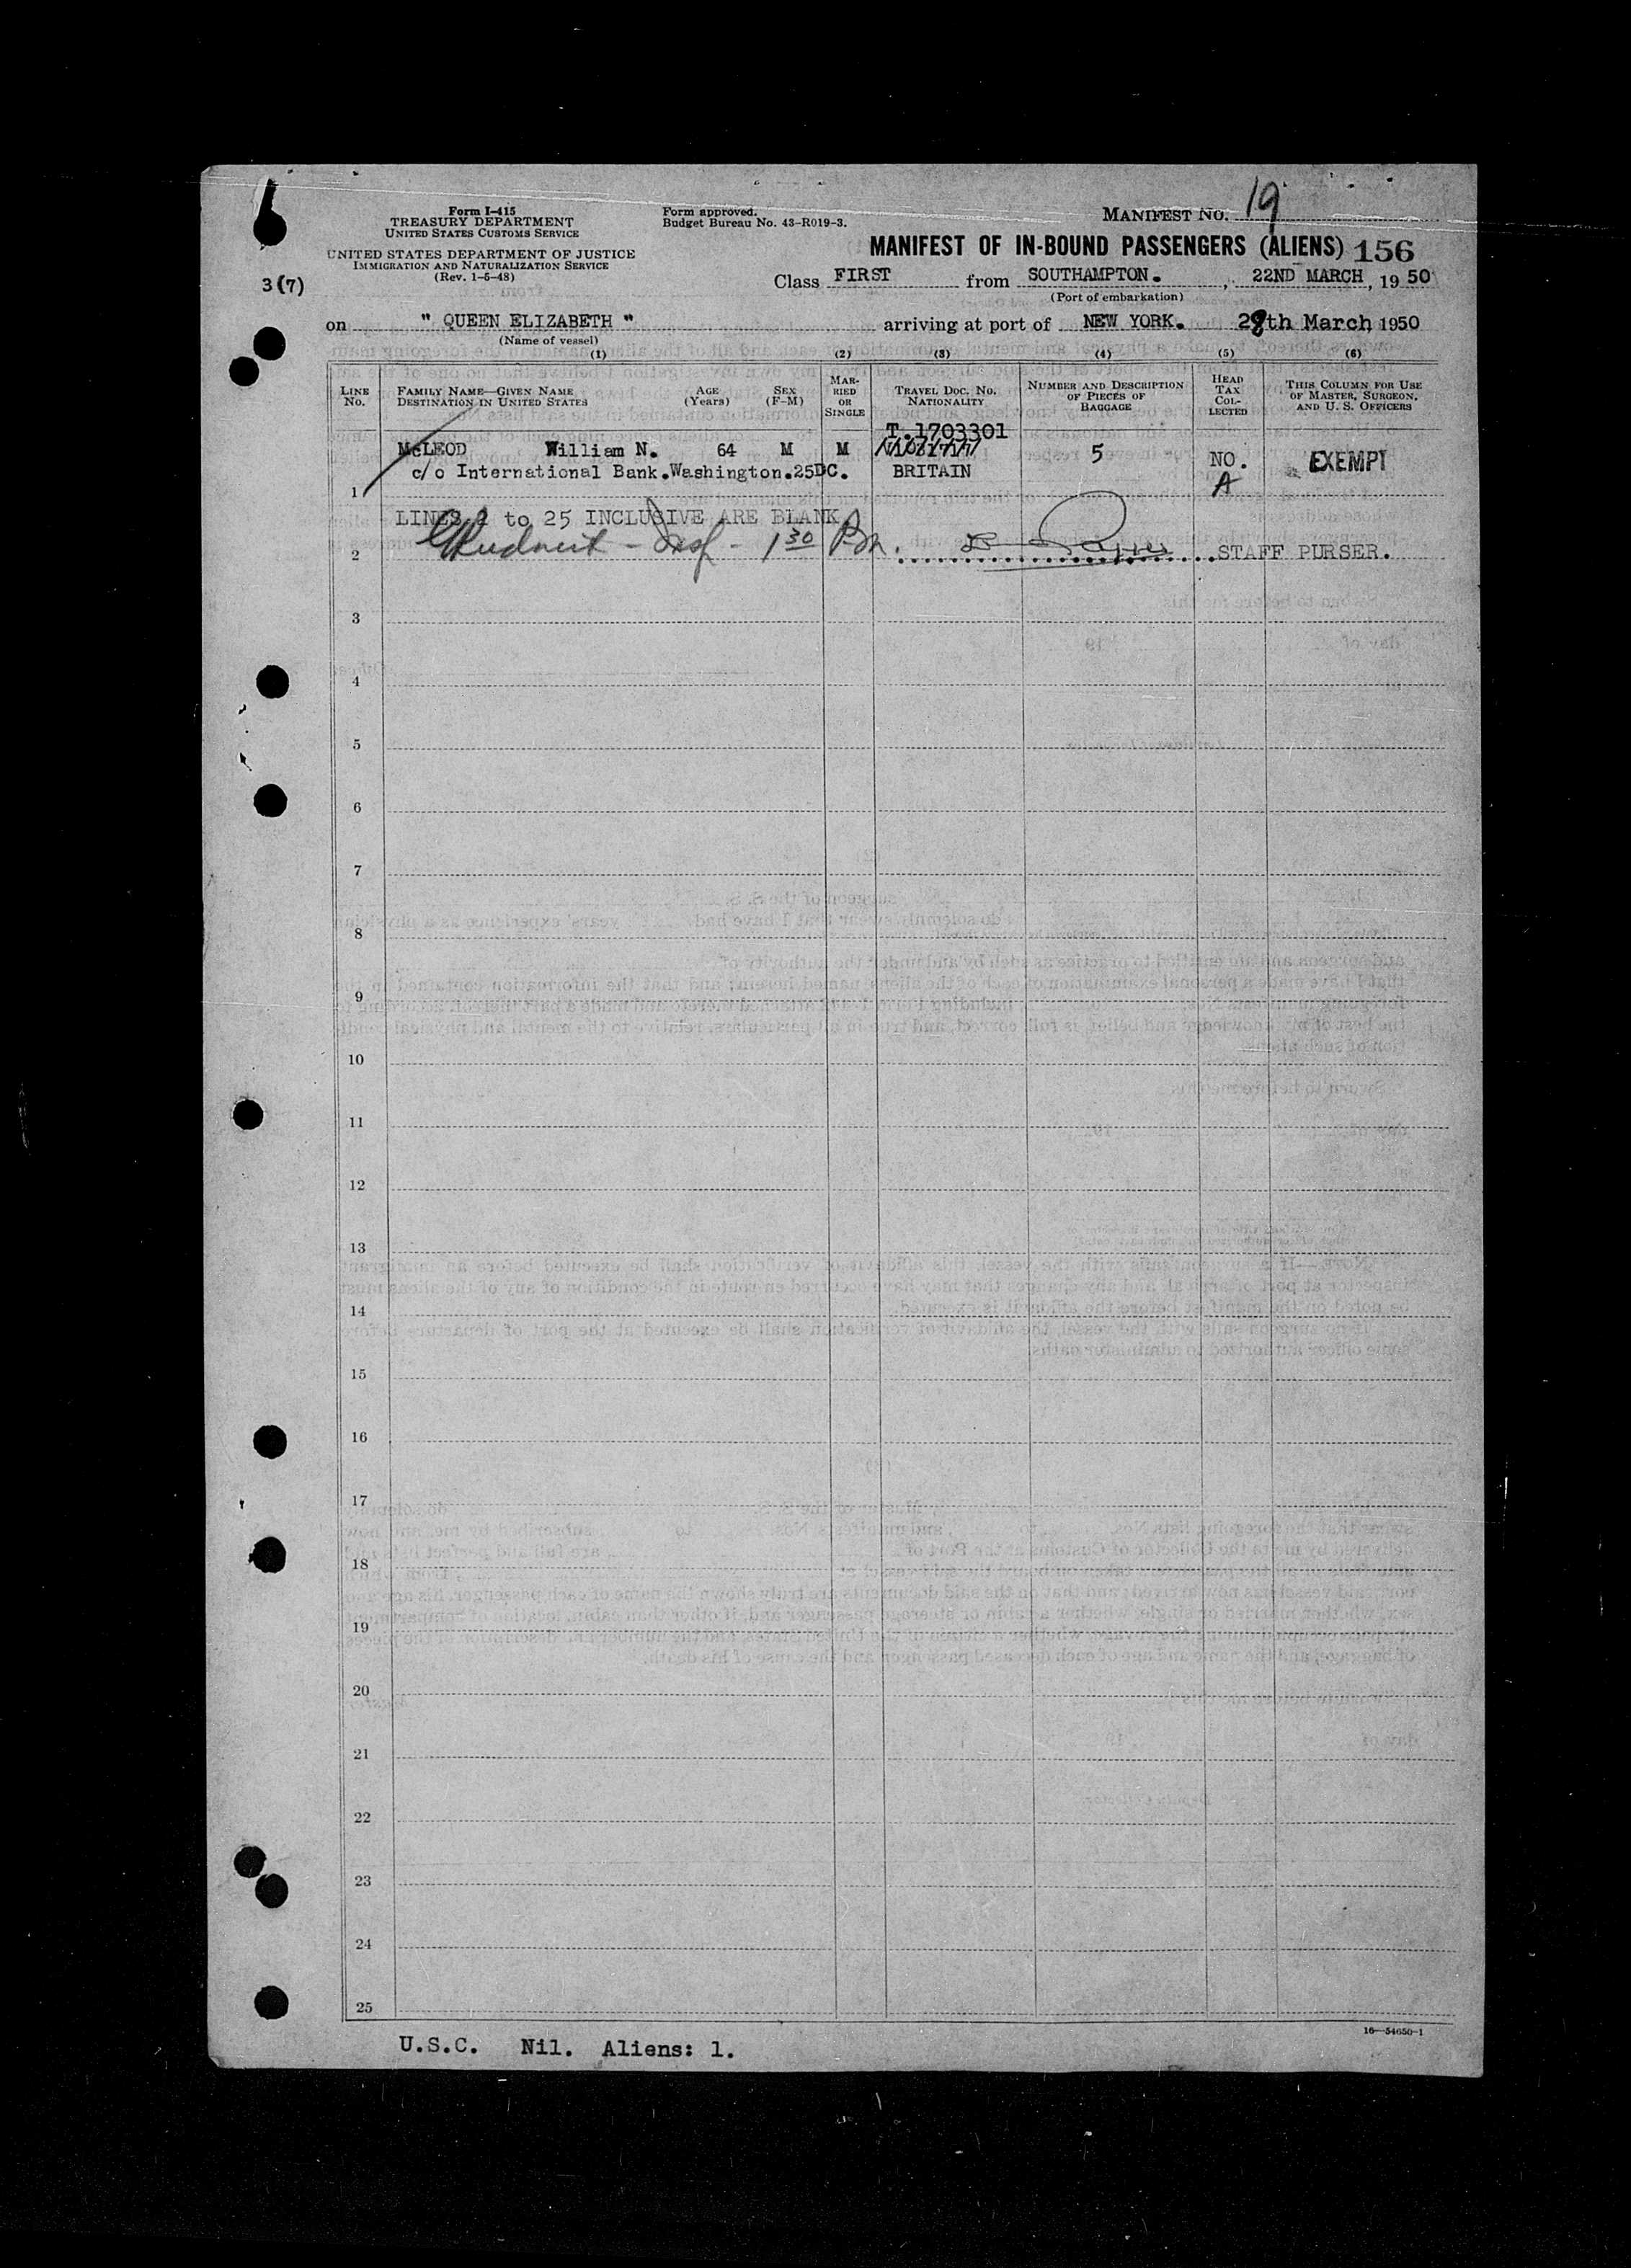 Form I-415
TREASURY DEPARTMENT
UNITED STATES CUSTOMS SERVICE
UNITED STATES DEPARTMENT OF JUSTICE
IMMIGRATION AND NATURALIZATION SERVICE
(Rev. 1-5-48)
3(7)
Form approved.
Budget Bureau No. 43-R019-3.
MANIFEST NO. 19
MANIFEST OF IN-BOUND PASSENGERS (ALIENS) 156
Class FIRST from SOUTHAMPTON. , 22ND MARCH, 19 50
(Port of embarkation)
on " QUEEN ELIZABETH " arriving at port of NEW YORK. 28th March, 1950
(Name of vessel)
(1) (2) (3) (4) (5) (6)
LINE No.
FAMILY NAME—GIVEN NAME
DESTINATION IN UNITED STATES
AGE (Years)
SEX (F-M)
MARRIED OR SINGLE
TRAVEL DOC. NO.
NATIONALITY
NUMBER AND DESCRIPTION OF PIECES OF BAGGAGE
HEAD TAX COLLECTED
THIS COLUMN FOR USE OF MASTER, SURGEON, AND U. S. OFFICERS
T.1703301
McLEOD William N. 64 M M 5
c/o International Bank.Washington.25DC. BRITAIN NO. EXEMPT
1 A
LINES 2 to 25 INCLUSIVE ARE BLANK
2 Insp - 1 30 Pm. STAFF PURSER.
3
4
5
6
7
8
9
10
11
12
13
14
15
16
17
18
19
20
21
22
23
24
25
16—54650-1
U.S.C. Nil. Aliens: 1.